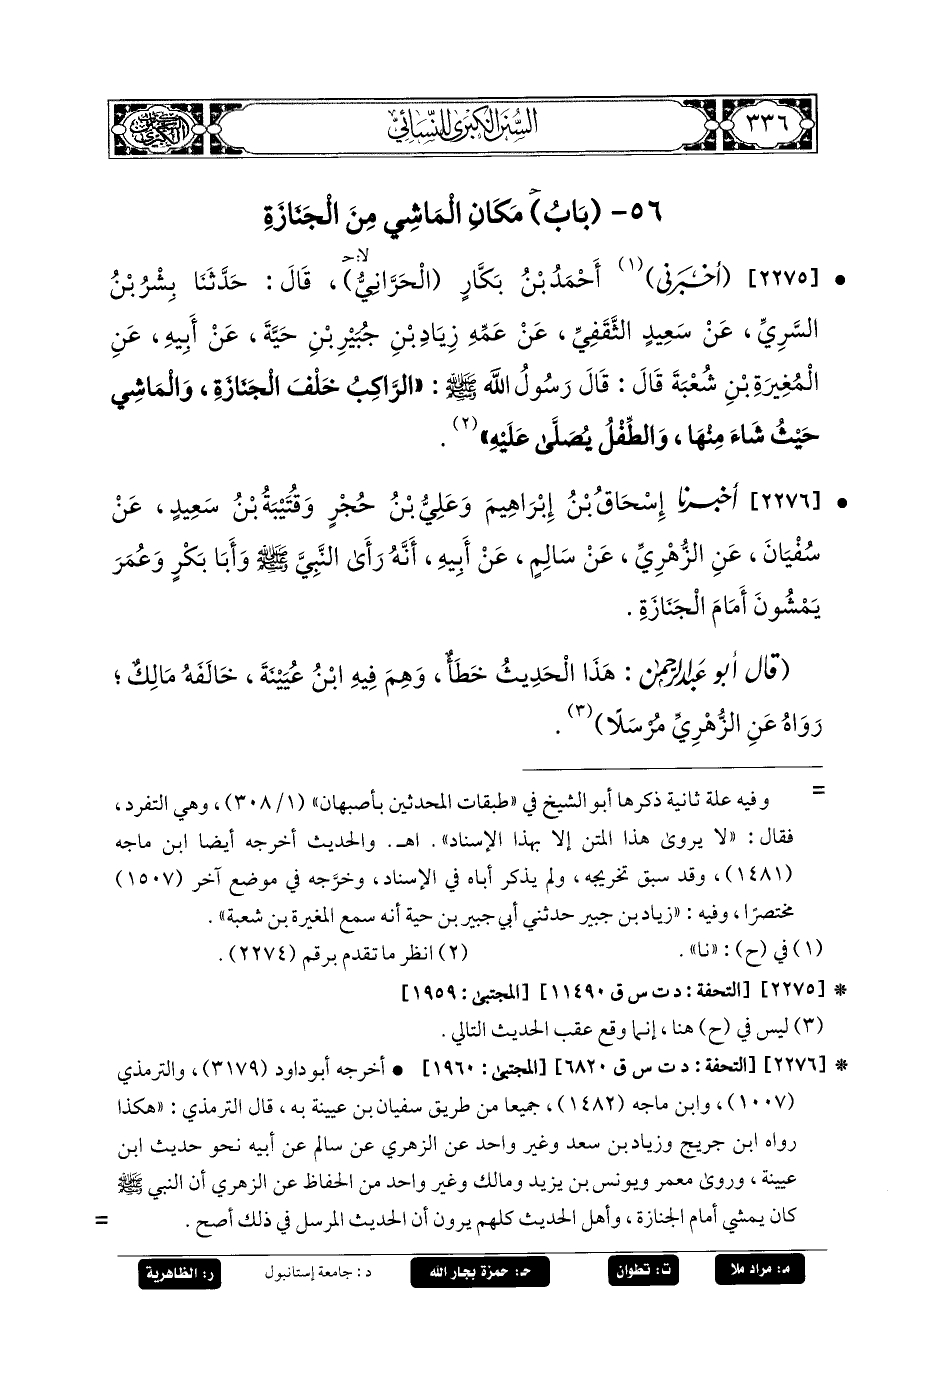 ٣٣٦
السنن الكبرى للنسائي
٥٦- (بَابُ) مَكَانِ الْمَاشِي مِنَ الْجَنَازَةِ
• [٢٢٧٥] (أَخْبَرَنِي)(١) أَحْمَدُ بْنُ بَكَّارٍ (الْحَرَّانِيُّ)، قَالَ: حَدَّثَنَا بِشْرُ بْنُ
السَّرِيِّ، عَنْ سَعِيدٍ الثَّقَفِيِّ، عَنْ عَمِّهِ زِيَادِ بْنِ جُبَيْرِ بْنِ حَيَّةَ، عَنْ أَبِيهِ، عَنِ
الْمُغِيرَةِ بْنِ شُعْبَةَ قَالَ: قَالَ رَسُولُ اللَّه ﷺ: «الرَّاكِبُ خَلْفَ الْجَنَازَةِ، وَالْمَاشِي
حَيْثُ شَاءَ مِنْهَا، وَالطِّفْلُ يُصَلَّىٰ عَلَيْهِ»(٢).
• [٢٢٧٦] أَخْبَرَنَا إِسْحَاقُ بْنُ إِبْرَاهِيمَ وَعَلِيُّ بْنُ حُجْرٍ وَقُتَيْبَةُ بْنُ سَعِيدٍ، عَنْ
سُفْيَانَ، عَنِ الزُّهْرِيِّ، عَنْ سَالِمٍ، عَنْ أَبِيهِ، أَنَّهُ رَأَىٰ النَّبِيَّ ﷺ وَأَبَا بَكْرٍ وَعُمَرَ
يَمْشُونَ أَمَامَ الْجَنَازَةِ.
(قال أبو عبدالرحمن: هَذَا الْحَدِيثُ خَطَأٌ، وَهِمَ فِيهِ ابْنُ عُيَيْنَةَ، خَالَفَهُ مَالِكٌ؛
رَوَاهُ عَنِ الزُّهْرِيِّ مُرْسَلًا)(٣).
= وفيه علة ثانية ذكرها أبو الشيخ في «طبقات المحدثين بأصبهان» (١/ ٣٠٨)، وهي التفرد،
فقال: «لا يروىٰ هذا المتن إلا بهذا الإسناد». اهـ. والحديث أخرجه أيضا ابن ماجه
(١٤٨١)، وقد سبق تخريجه، ولم يذكر أباه في الإسناد، وخرَّجه في موضع آخر (١٥٠٧)
مختصرًا، وفيه: «زياد بن جبير حدثني أبي جبير بن حية أنه سمع المغيرة بن شعبة».
(١) في (ح): «نا». (٢) انظر ما تقدم برقم (٢٢٧٤).
* [٢٢٧٥] [التحفة: د ت س ق ١١٤٩٠] [المجتبىٰ: ١٩٥٩]
(٣) ليس في (ح) هنا، إنما وقع عقب الحديث التالي.
* [٢٢٧٦] [التحفة: د ت س ق ٦٨٢٠] [المجتبىٰ: ١٩٦٠] • أخرجه أبو داود (٣١٧٩)، والترمذي
(١٠٠٧)، وابن ماجه (١٤٨٢)، جميعا من طريق سفيان بن عيينة به، قال الترمذي: «هكذا
رواه ابن جريج وزياد بن سعد وغير واحد عن الزهري عن سالم عن أبيه نحو حديث ابن
عيينة، وروىٰ معمر ويونس بن يزيد ومالك وغير واحد من الحفاظ عن الزهري أن النبي ﷺ
كان يمشي أمام الجنازة، وأهل الحديث كلهم يرون أن الحديث المرسل في ذلك أصح. =
م: مراد ملا ت: تطوان حـ: حمزة بجار الله د: جامعة إستانبول ر: الظاهرية